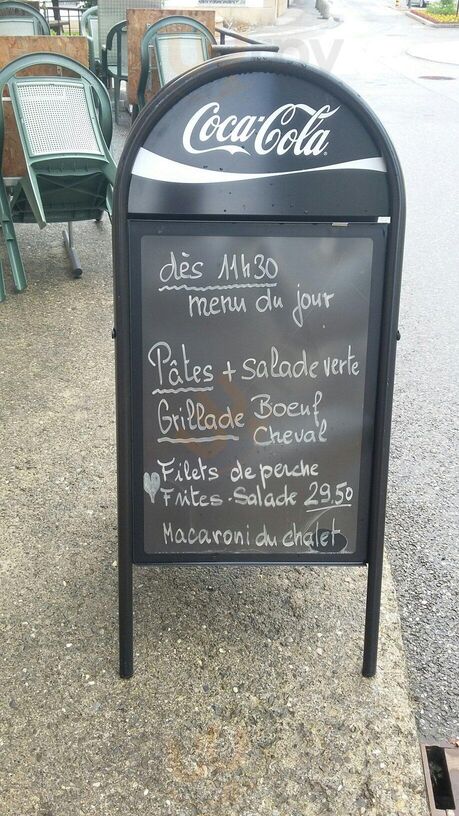 Coca-Cola
dès 11h30
menu du jour
Pâtes + salade verte
Grillade Boeuf
Cheval
Filets de perche
Frites-Salade 29.50
Macaroni du chalet